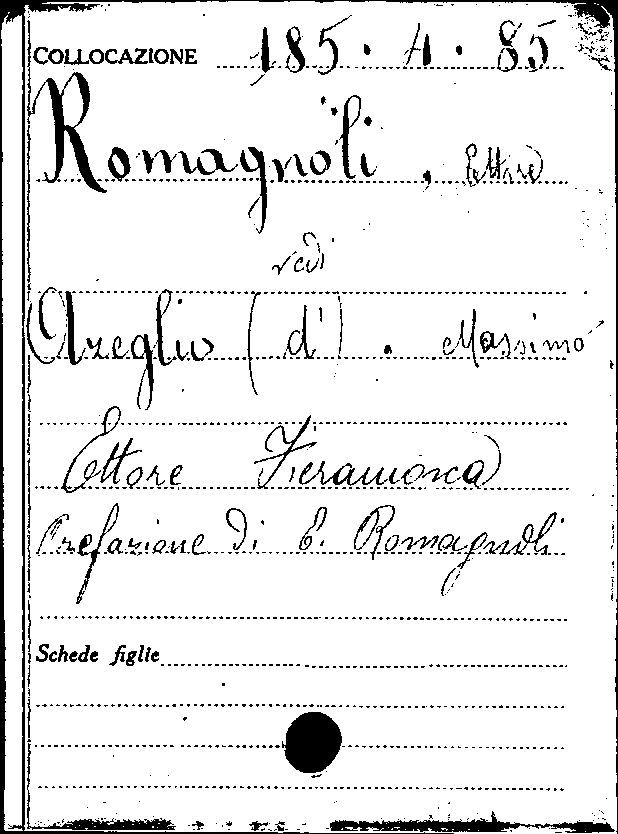 COLLOCAZIONE 185 · 4 · 85
Romagnoli, Ettore
vedi
Azeglio (d'). Massimo
Ettore Fieramosca
Prefazione di E. Romagnoli
Schede figlie